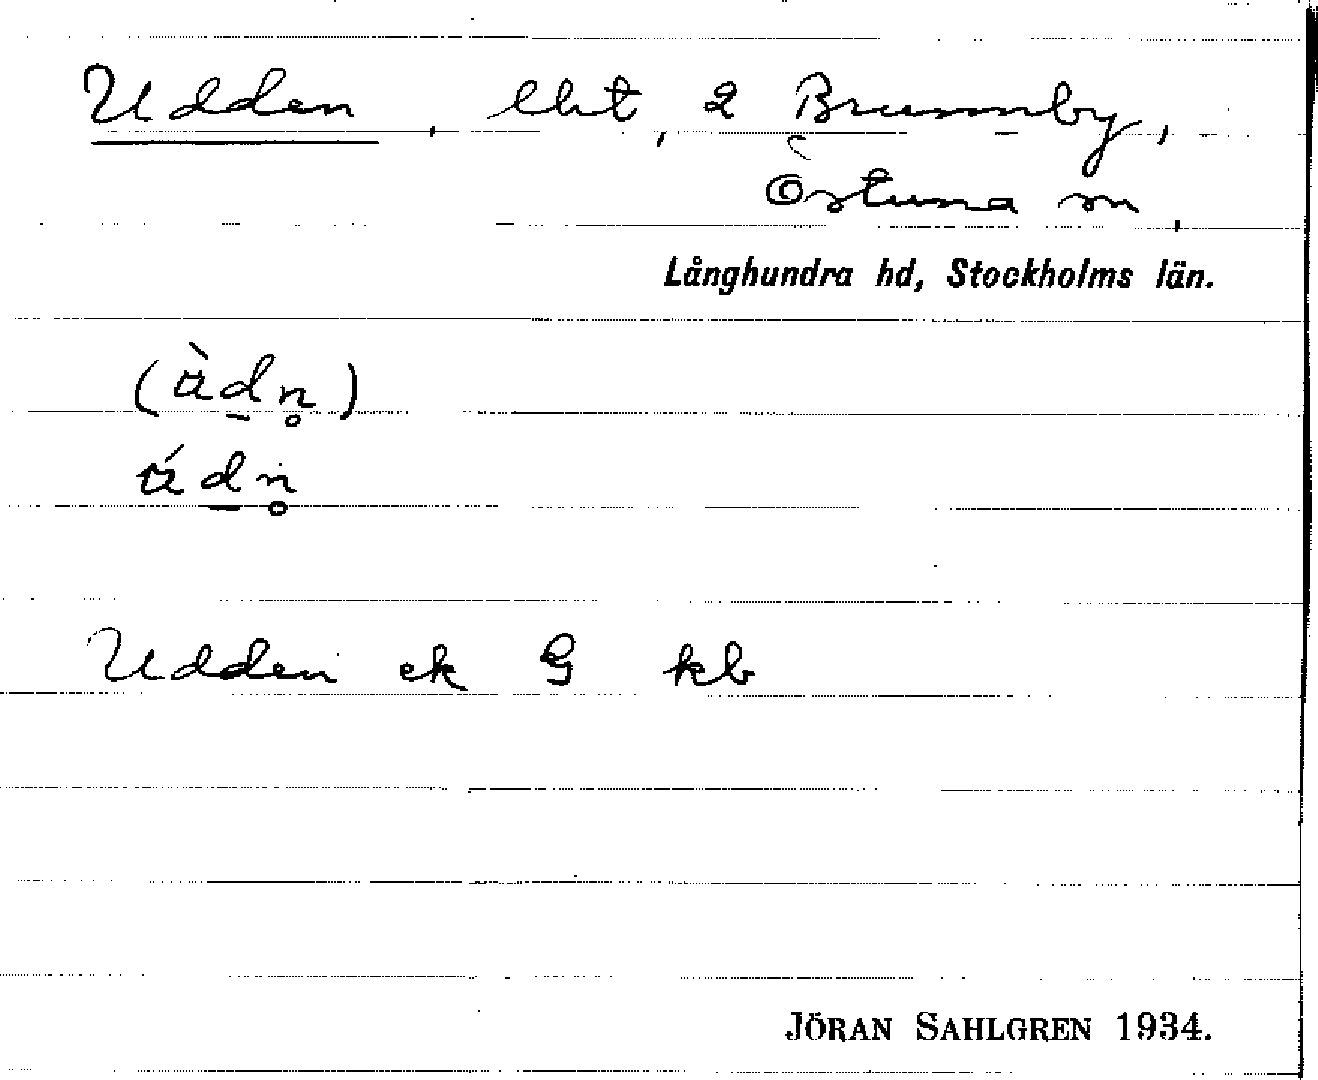 Udden, lht, 2 Brunnby,
Östuna sn,
Långhundra hd, Stockholms län.
Udden ek G kb
JÖRAN SAHLGREN 1934.